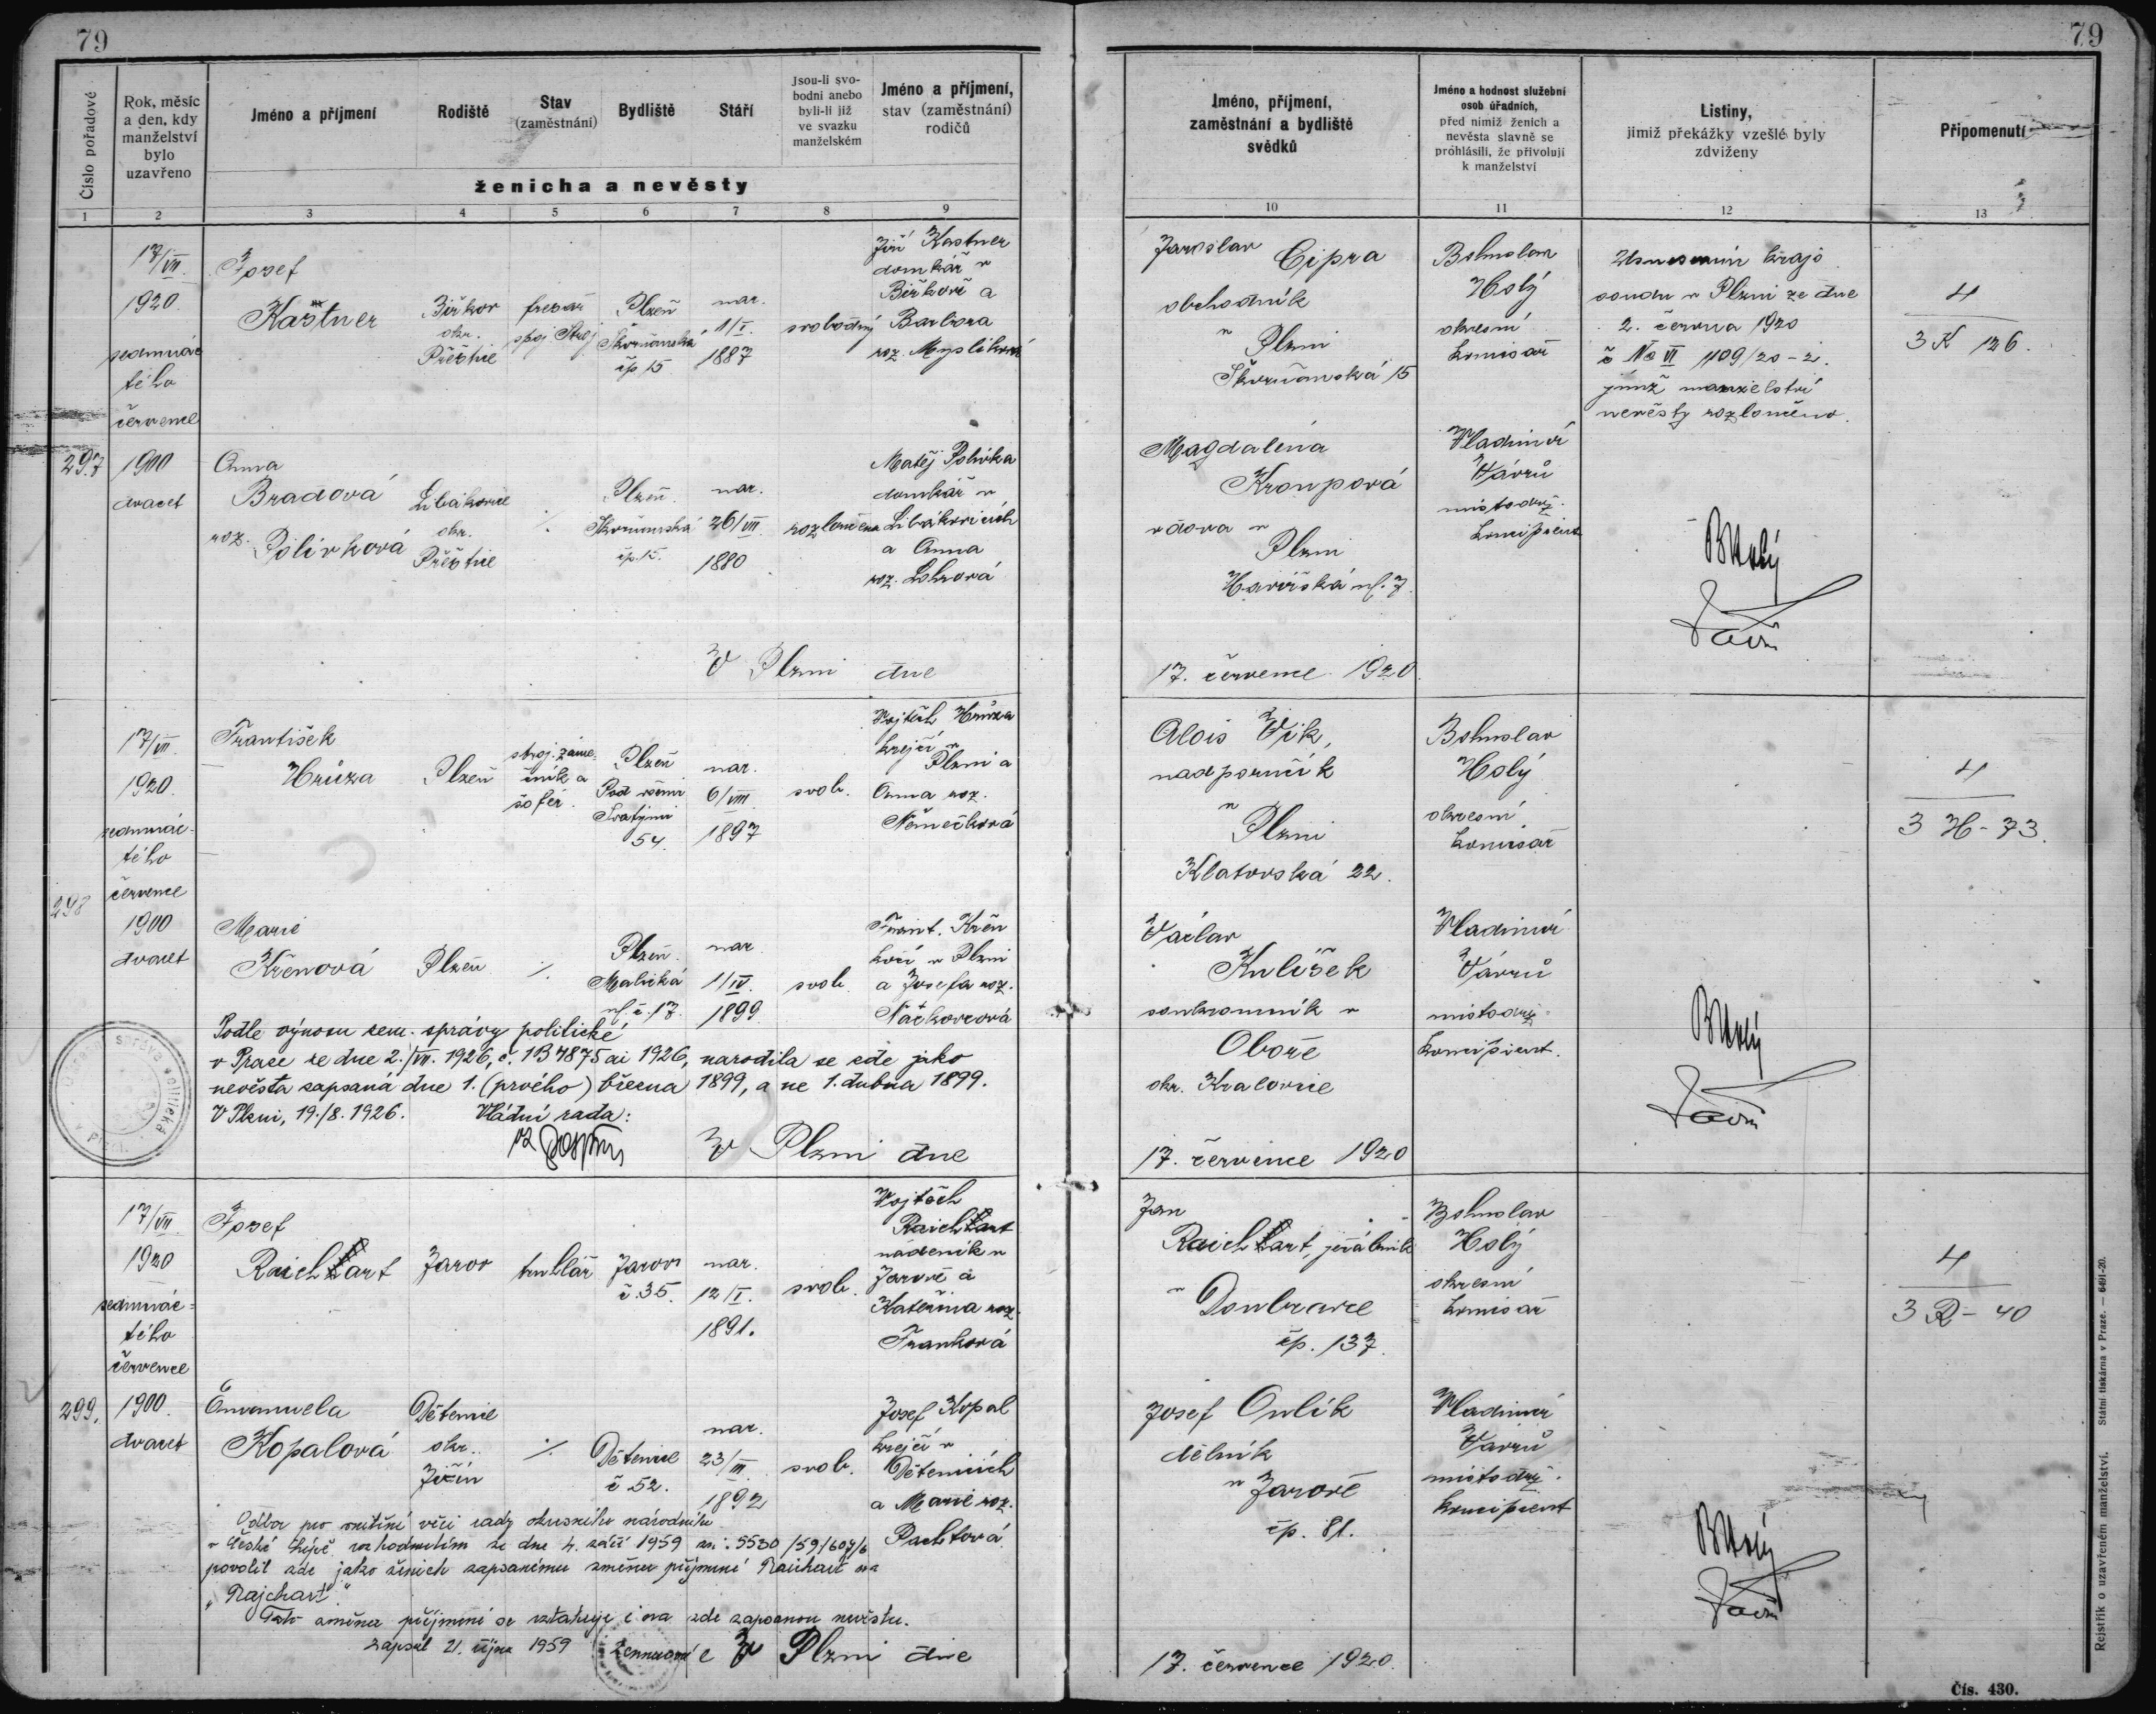 79
79
Číslo pořadové
Rok, měsíc
a den, kdy
manželství
bylo
uzavřeno
Jméno a příjmení
Rodiště
Stav
(zaměstnání)
Bydliště
Stáří
Jsou-li svo-
bodni anebo
byli-li již
ve svazku
manželském
Jméno a příjmení,
stav (zaměstnání)
rodičů
ženicha a nevěsty
Jméno, příjmení,
zaměstnání a bydliště
svědků
Jméno a hodnost služební
osob úřadních,
před nimiž ženich a
nevěsta slavně se
prohlásili, že přivolují
k manželství
Listiny,
jimiž překážky vzešlé byly
zdviženy
Připomenutí
1 2 3 4 5 6 7 8 9 10 11 12 13
297
17/VII.
1920
sedmnác
tého
července
1900
dvacet
Josef
Kastner
okr.
Přeštice
Plzeň
Škvrňanská
čp 15
nar.
1/I.
1887
svobodný
Jiří Kastner
domkář v
a
Barbora
roz.
Anna
Bradová
roz. Polívková
Libákovice
okr.
Přeštice
·/.
Plzeň
Škvrňanská
čp. 15.
nar.
26/VII.
1880
rozloučena
Matěj Polívka
domkář v
Libákovicích
a Anna
roz.
Jaroslav Cipra
obchodník
v Plzni
Škvrňanská 15
Bohuslav
Holý
okresní
komisař
Usnesením kraj.
soudu v Plzni ze dne
2. června 1920
č Nc VI 1109/20-2.
jímž manželství
nevěsty rozloučeno.
4
3 K 126.
Magdalena
Kroupová
vdova v
Plzni
Havířská ul. 7.
Vladimír
Vávrů
místodrž.
koncipient
BHolý
V Plzni dne
17. července 1920.
298
17/VII.
1920.
sedmnác-
tého
července
1900
dvacet
František
Hrůza
Plzeň
stroj. záme-
čník a
šofér.
Plzeň
Pod všemi
Svatými
54.
nar.
6/VIII.
1897
svob.
Vojtěch Hrůza
krejčí v
Plzni a
Anna roz.
Němečková
Marie
Křenová
Plzeň
·/.
Plzeň.
Malická
ul. č. 17.
nar
1/IV.
1899
svob.
Frant. Křen
kočí v Plzni
a Josefa roz.
Podle výnosu zem. správy politické
v Praze ze dne 2./VII. 1926, č. 1B 4875 ai 1926, narodila se zde jako
nevěsta zapsaná dne 1. (prvého) března 1899, a ne 1. dubna 1899.
V Plzni, 19./8. 1926. Vládní rada:
Alois Vik,
nadporučík
v
Plzni
Klatovská 22.
Bohuslav
Holý
okresní
komisař
4
3 H-73.
Václav
Kulíšek
soukromník v
Oboře
okr. Kralovice
Vladimír
Vávrů
místodrž.
koncipient.
BHolý
V Plzni dne
17. července 1920
299.
17/VII.
1920
sedmnác-
tého
července
1900.
dvacet
Josef
Raichart
Jarov
truhlář
Jarov
č. 35.
nar.
12/I.
1891.
svob.
Vojtěch
Raichart
nádeník v
Jarově a
Kateřina roz.
Franková
Emanuela
Kopalová
Dětenice
okr.
Jičín
·/.
Dětenice
č 52.
nar.
23/III.
1892
svob.
Josef Kopal
krejčí v
Dětenicích
a Marie roz.
Pachtová
Odbor pro vnitřní věci rady okresního národního
v České Lípě rozhodnutím ze dne 4. září 1959 zn: 5530/59/607/6
povolil zde jako ženich zapsanému změnu příjmení Raichart na
"Rajchart".
Tato změna příjmení se vztahuje i na zde zapsanou nevěstu.
Zapsal 21. října 1959
Jan
Raichart, jeřábník
v
Doubravce
čp. 137.
Bohuslav
Holý
okresní
komisař
4
3 R-40
Josef Orlík
dělník
v Jarově
čp. 81.
Vladimír
Vávrů
místodrž.
koncipient
BHolý
V Plzni dne
17. července 1920.
Rejstřík o uzavřeném manželství. Státní tiskárna v Praze. — 6491-20.
Čís. 430.